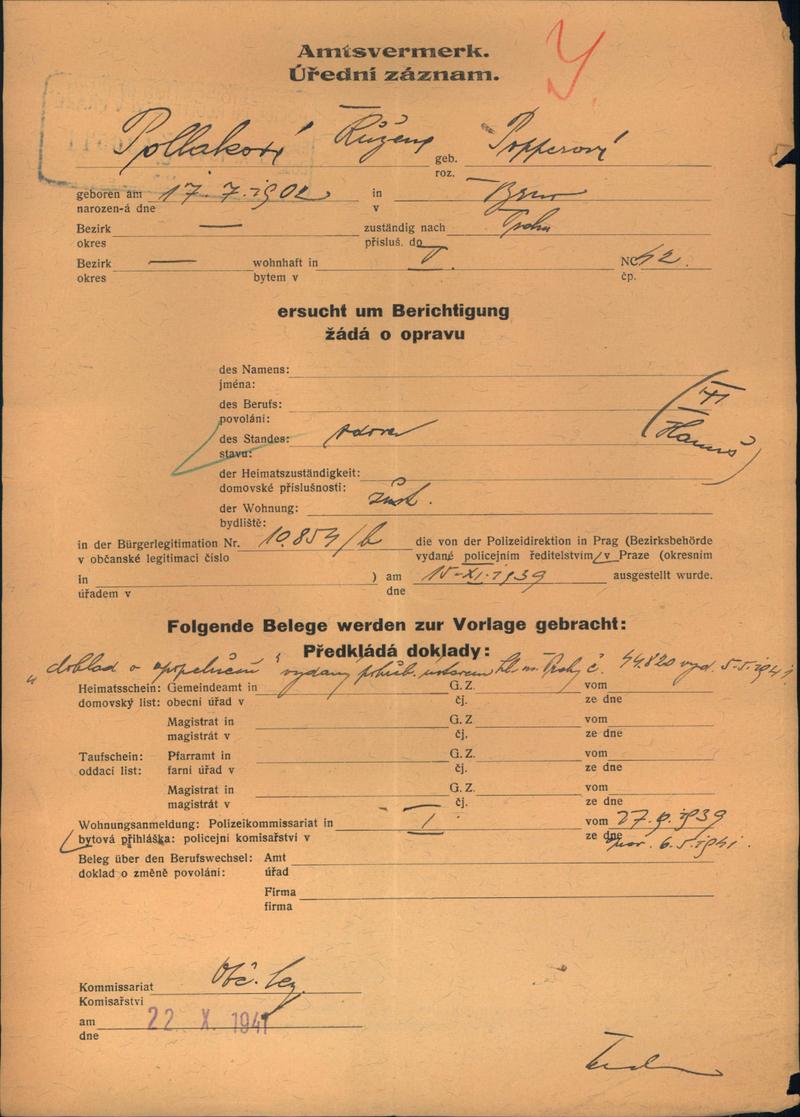 Amtsvermerk.
Úřední záznam.
Pollaková Růžena geb. Popperová
roz.
geboren am 17.7.1902 in Brno
narozen-á dne v
Bezirk — zuständig nach Praha
okres přísluš. do
Bezirk — wohnhaft in I. NC 42.
okres bytem v čp.
ersucht um Berichtigung
žádá o opravu
des Namens:
jména:
des Berufs:
povolání:
des Standes: vdova
stavu:
Hanuš
der Heimatszuständigkeit:
domovské příslušnosti:
der Wohnung:
bydliště:
in der Bürgerlegitimation Nr. 10.854/b die von der Polizeidirektion in Prag (Bezirksbehörde
v občanské legitimaci číslo vydané policejním ředitelstvím v Praze (okresním
in ) am 15-XI-1939 ausgestellt wurde.
úřadem v dne
Folgende Belege werden zur Vorlage gebracht:
Předkládá doklady:
"doklad o zpopelnění" vydaný pohřeb. ústavem hl. m. Prahy č. 44.820 vyd. 5.5.1941.
Heimatsschein: Gemeindeamt in G. Z. vom
domovský list: obecní úřad v čj. ze dne
Magistrat in G. Z vom
magistrát v čj. ze dne
Taufschein: Pfarramt in G. Z. vom
oddací list: farní úřad v čj. ze dne
Magistrat in G. Z. vom
magistrát v čj. ze dne
Wohnungsanmeldung: Polizeikommissariat in I. vom 1939
bytová přihláška: policejní komisařství v ze dne 6.5.1941.
Beleg über den Berufswechsel: Amt
doklad o změně povolání: úřad
Firma
firma
Kommissariat Obč. leg.
Komisařství
am 22 X. 1941
dne